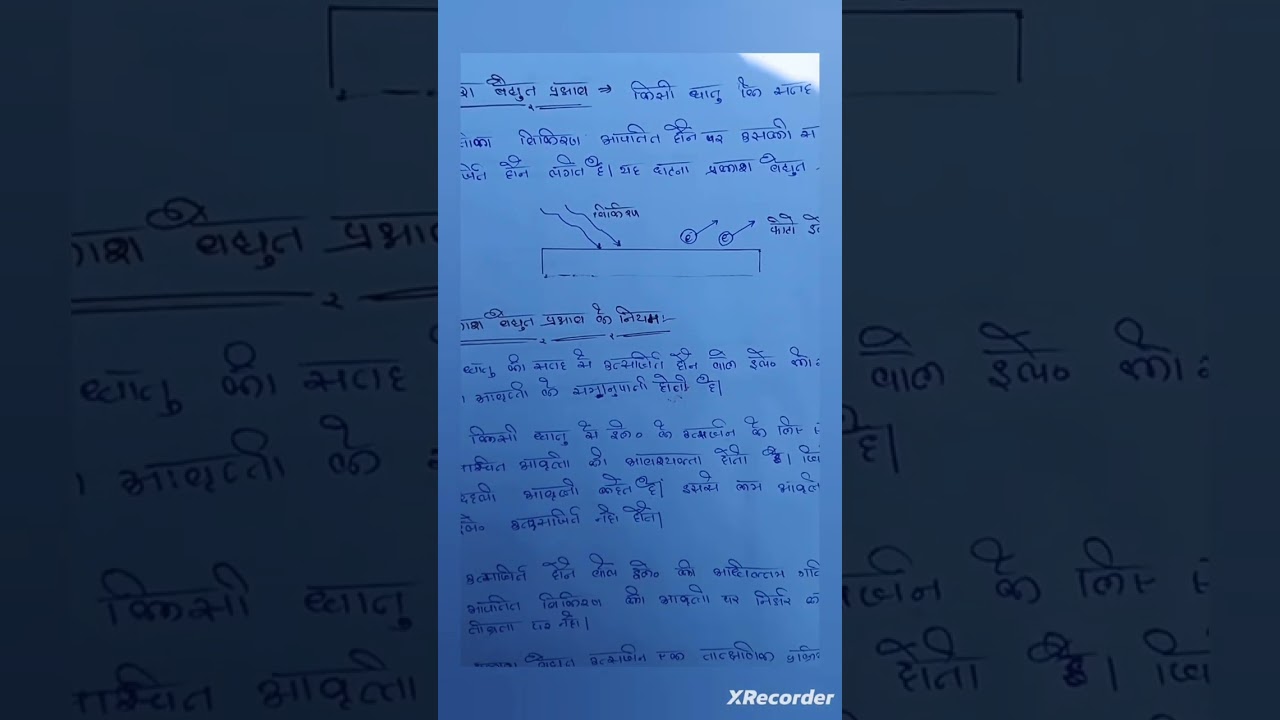 वैद्युत प्रभाव ⇒ किसी धातु कि सतह
विकिरण आपतित होने पर उसकी स
होने लगते है। यह घटना प्रकाश वैद्युत
विकिरण
e e फोटो इ
वैद्युत प्रभाव के नियम:-
धातु की सतह से उत्सर्जित होने वाले इले० की
आवृत्ती के समानुपाती होती है।
किसी धातु से इले० के उत्सर्जन के लिए
श्चित आवृत्ती की आवश्यक्ता होती है।
देहली आवृत्ती कहते है। इससे कम आवृत
इले० उत्सर्जित नही होते।
उत्सर्जित होने वाले इले० की अधिकतम गति
आपतित विकिरण की आवृत्ती पर निर्भर क
तीव्रता पर नही।
वैद्युत उत्सर्जन एक तात्क्षणिक प्रक्रि
XRecorder